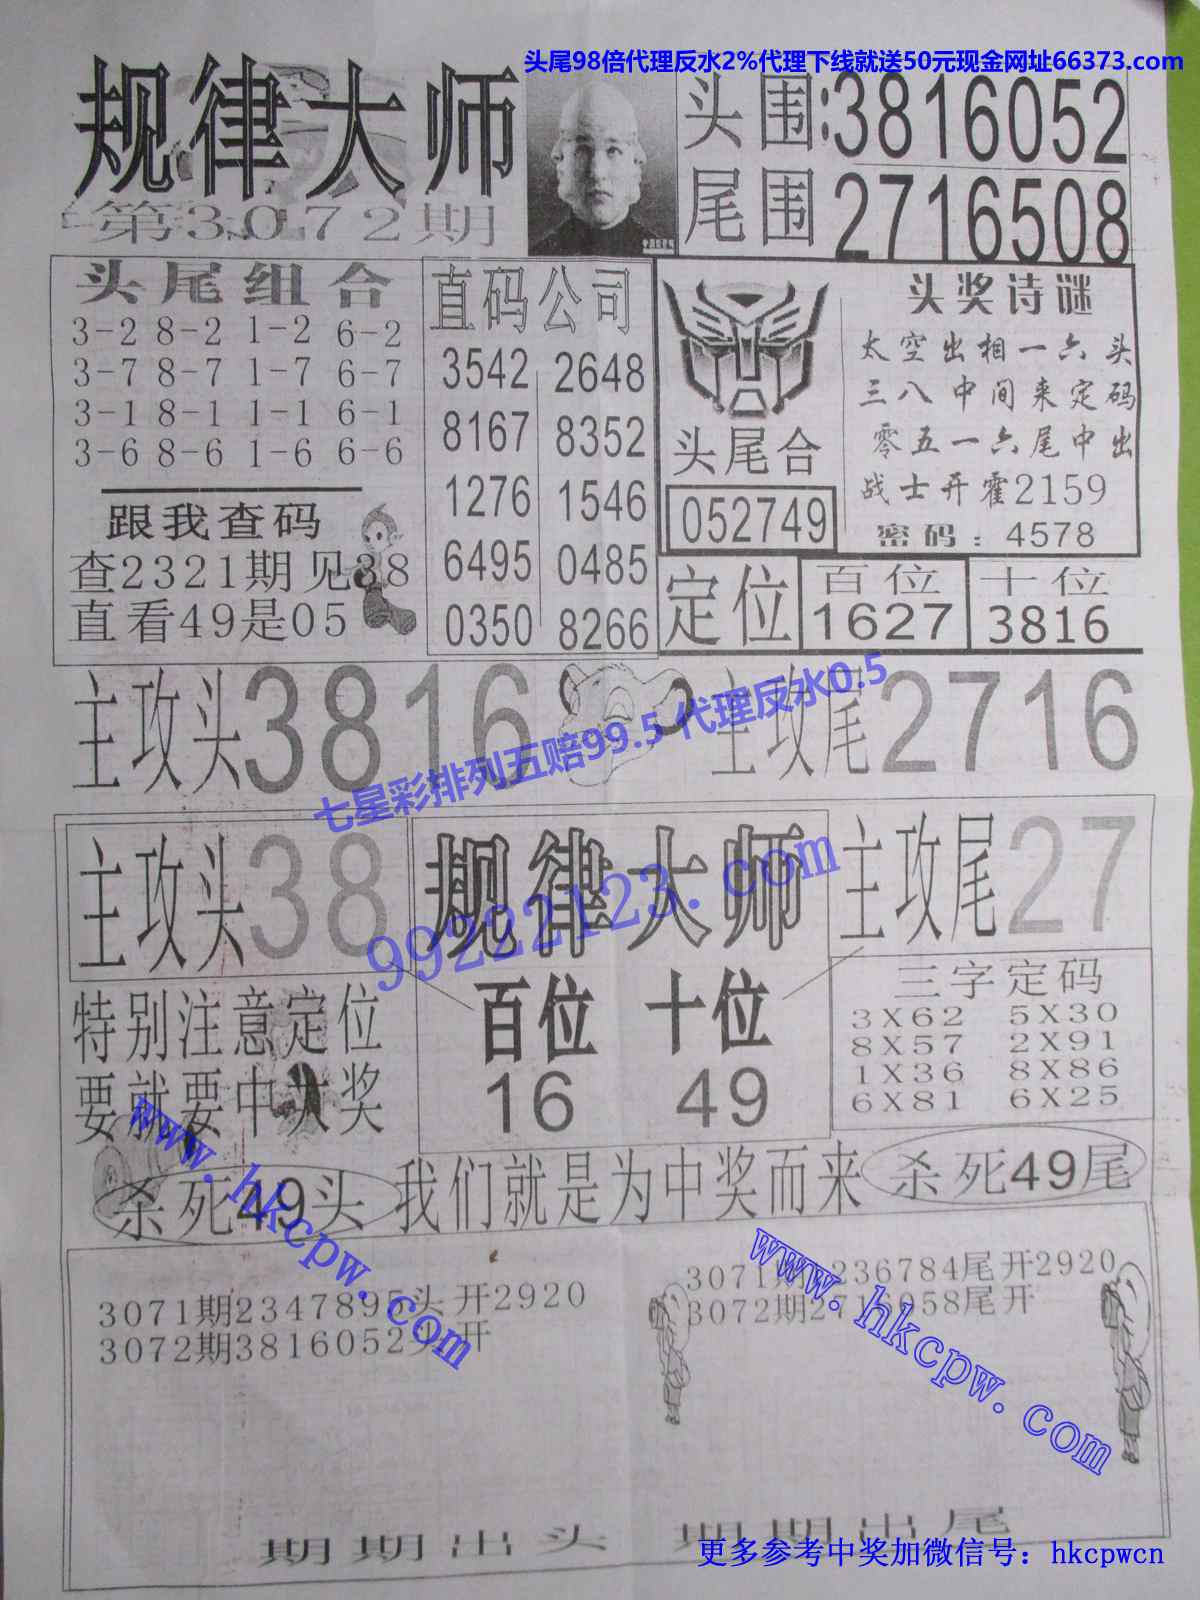 头尾98倍代理反水2%代理下线就送50元现金网址66373.com
规律大师
第3072期
头围:3816052
尾围2716508
头尾组合
3-2 8-2 1-2 6-2
3-7 8-7 1-7 6-7
3-1 8-1 1-1 6-1
3-6 8-6 1-6 6-6
跟我查码
查2321期见38
直看49是05
直码公司
3542 2648
8167 8352
1276 1546
6495 0485
0350 8266
头尾合
052749
头奖诗谜
太空出相一六头
三八中间来定码
零五一六尾中出
战士开霍2159
密码：4578
定位
百位
1627
十位
3816
主攻头3816
主攻尾2716
七星彩排列五赔99.5 代理反水0.5
主攻头38
规律大师
主攻尾27
99222123.com
特别注意定位
要就要中大奖
百位 十位
16 49
三字定码
3X62 5X30
8X57 2X91
1X36 8X86
6X81 6X25
杀死49头
我们就是为中奖而来
杀死49尾
www.hkcpw.com
www.hkcpw.com
3071期2347895头开2920
3072期3816052头开
3071期 236784尾开2920
3072期271 058尾开
期期出头 期期出尾
更多参考中奖加微信号：hkcpwcn